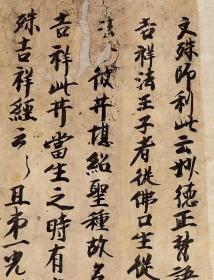 文殊師利此云妙德正梵音
吉祥法王子者從佛口生從
彼并堪紹聖種故名
吉祥此并當生之時有
殊吉祥經云〻且弟一光